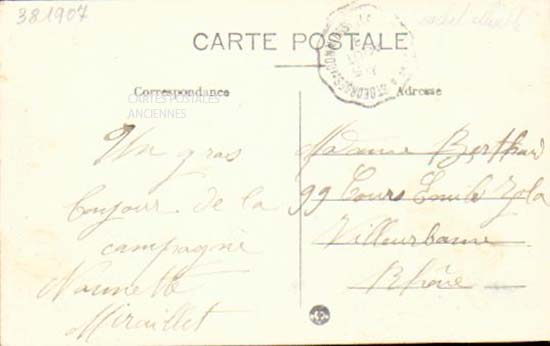 381907
CARTE POSTALE
Correspondance
Adresse
CARTES POSTALES
ANCIENNES
Un gros
bonjour de la
campagne
Nannette
Miraillet
Madame Berthard
99 Cours Emile Zola
Villeurbanne
Rhône